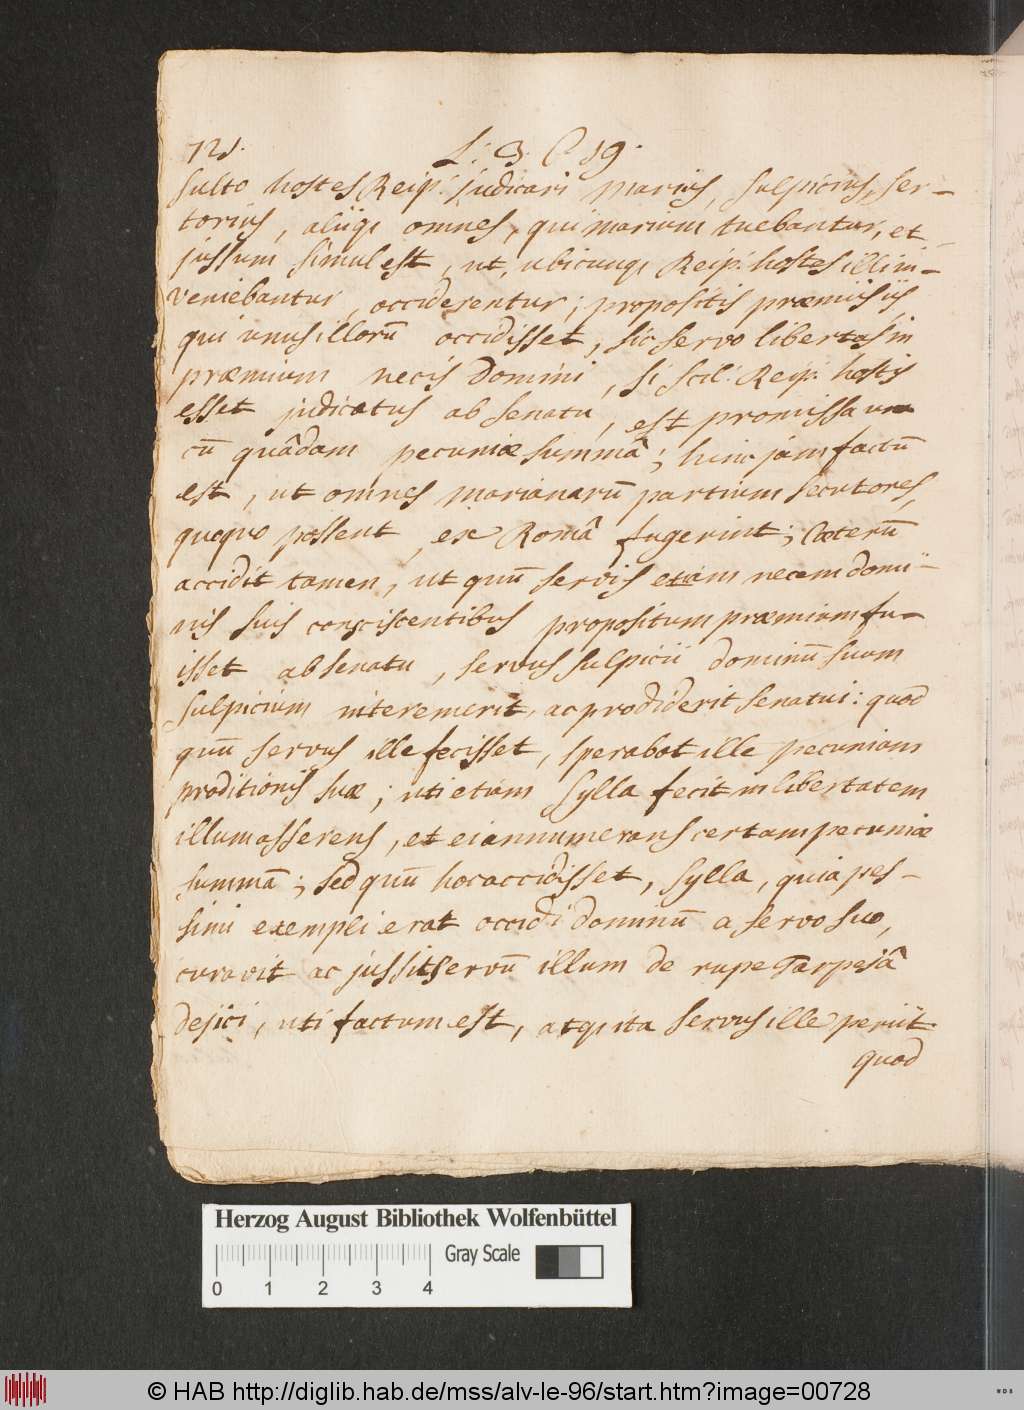 721.
L: 3. C 19.
sulto hostes Reip: judicari Marius, Sulpicius, Ser-
torius, aliiq; omnes, qui marium tuebantur, et
jussum simul est, ut, ubicunq; Reip: hostes illi in-
veniebantur, occiderentur; propositis præmiis iis,
qui unus illorū occidisset, sic servo libertas in
præmium necis Domini, si scil: Reip: hostis
esset judicatus ab senatu, est promissa una
cū quâdam pecuniæ summâ; hinc jam factū
est, ut omnes marianarū partium secutores,
quoquo possent, ex Româ fugerint; Cæterū
accidit tamen, ut quū servis etiam necem domi-
nis suis consciscentibus propositum præmium fu-
isset ab senatu, servus Sulpicii dominū suum
Sulpicium interemerit, ac prodiderit senatui: quod
quū servus ille fecisset, sperabat ille pecuniam
proditionis suæ; uti etiam Sylla fecit in libertatem
illum asserens, et ei annumerans certam pecuniæ
summā; sed quū hoc accidisset, Sylla, quia pes-
simi exempli erat occidi dominū a servo suo,
curavit ac jussit servū illum de rupe Tarpejâ
dejici, uti factum est, atq; ita servus ille periit.
quod
Herzog August Bibliothek Wolfenbüttel
Gray Scale
0 1 2 3 4
© HAB http://diglib.hab.de/mss/alv-le-96/start.htm?image=00728